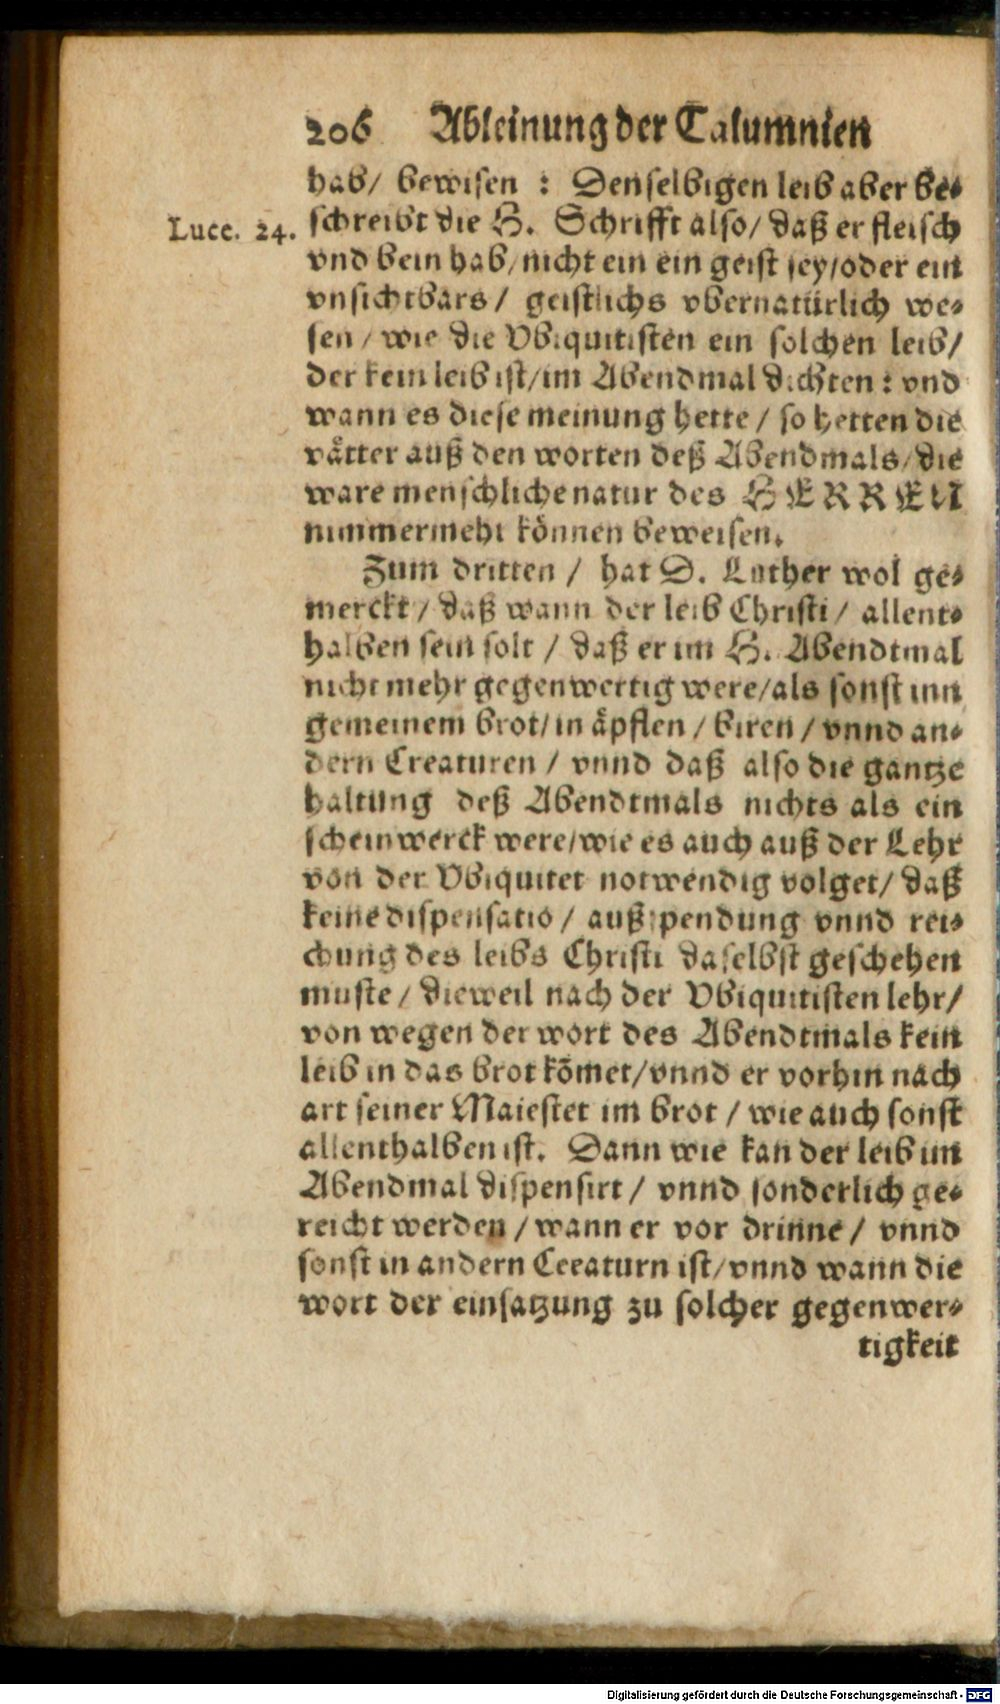 206 Ableinung der Calumnien
hab/ bewisen : Denselbigen leib aber be-
Luce. 24. schreibt die H. Schrifft also/ daß er fleisch
vnd bein hab/ nicht ein ein geist sey/ oder ein
vnsichtbars / geistlichs vbernatürlich we-
sen / wie die Vbiquitisten ein solchen leib/
der kein leib ist/ im Abendmal dichten : vnd
wann es diese meinung hette / so hetten die
vätter auß den worten deß Abendmals/ die
ware menschliche natur des HERREN
nimmermehr können beweisen.
Zum dritten / hat D. Luther wol ge-
merckt / daß wann der leib Christi / allent-
halben sein solt / daß er im H. Abendtmal
nicht mehr gegenwertig were/ als sonst inn
gemeinem brot/ in äpflen / biren / vnnd an-
dern Creaturen / vnnd daß also die gantze
haltung deß Abendtmals nichts als ein
scheinwerck were/ wie es auch auß der Lehr
von der Vbiquitet notwendig volget/ daß
keine dispensatio / außspendung vnnd rei-
chung des leibs Christi daselbst geschehen
muste / dieweil nach der Vbiquitisten lehr/
von wegen der wort des Abendtmals kein
leib in das brot kömet/ vnnd er vorhin nach
art seiner Maiestet im brot / wie auch sonst
allenthalben ist. Dann wie kan der leib im
Abendmal dispensirt / vnnd sonderlich ge-
reicht werden / wann er vor drinne / vnnd
sonst in andern Creaturn ist/ vnnd wann die
wort der einsatzung zu solcher gegenwer-
tigkeit
Digitalisierung gefördert durch die Deutsche Forschungsgemeinschaft - DFG